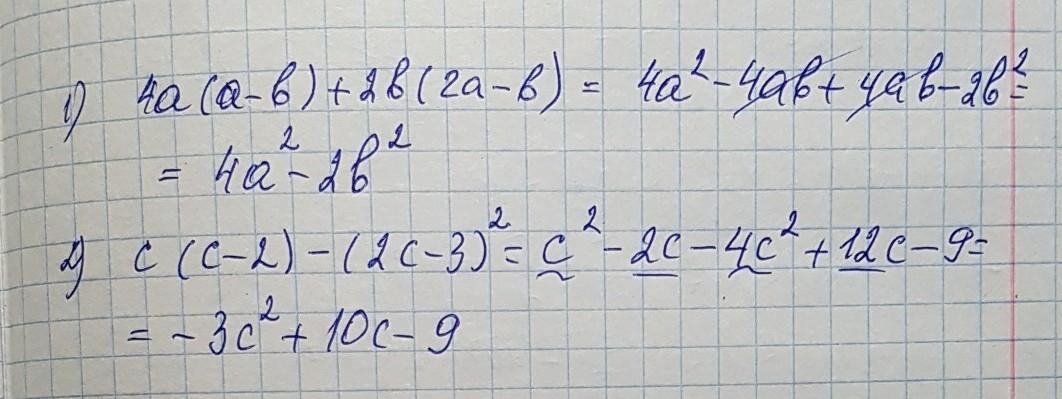 1) 4a(a-b)+2b(2a-b) = 4a²-4ab+4ab-2b²=
= 4a²-2b²
2) c(c-2)-(2c-3)² = c²-2c-4c²+12c-9=
= -3c²+10c-9